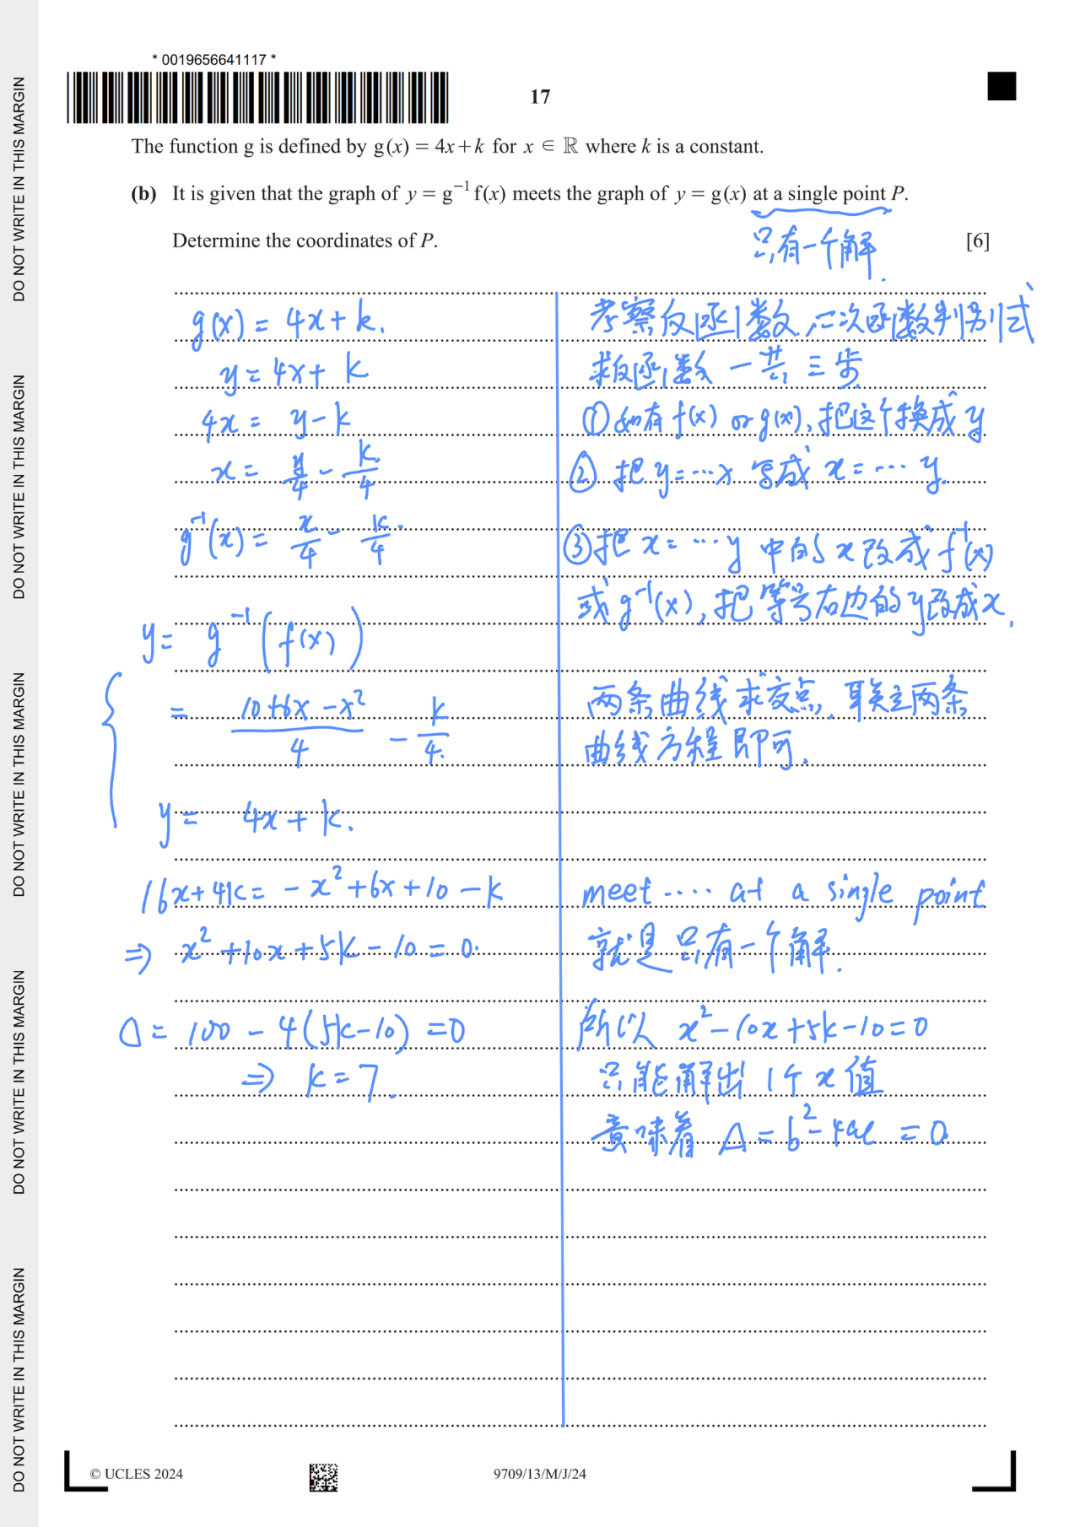 DO NOT WRITE IN THIS MARGIN
DO NOT WRITE IN THIS MARGIN
DO NOT WRITE IN THIS MARGIN
DO NOT WRITE IN THIS MARGIN
DO NOT WRITE IN THIS MARGIN
* 0019656641117 *
17
The function g is defined by g(x) = 4x + k for x ∈ ℝ where k is a constant.
(b) It is given that the graph of y = g⁻¹f(x) meets the graph of y = g(x) at a single point P.
只有一个解.
Determine the coordinates of P. [6]
g(x) = 4x + k.
y = 4x + k
4x = y - k
x = y/4 - k/4
g⁻¹(x) = x/4 - k/4.
y = g⁻¹(f(x))
= (10+6x-x²)/4 - k/4.
y = 4x + k.
16x+4k = -x²+6x+10-k
⇒ x²+10x+5k-10=0.
Δ = 100 - 4(5k-10) = 0
⇒ k = 7.
考察反函数,二次函数判别式
求反函数一共三步
① 如有 f(x) or g(x), 把这个换成 y
② 把 y=…x 写成 x=…y.
③ 把 x=…y 中的 x 改成 f⁻¹(x)
或 g⁻¹(x), 把等号右边的 y 改成 x.
两条曲线求交点, 联立两条
曲线方程即可.
meet .... at a single point
就是只有一个解.
所以 x²-10x+5k-10=0
只能解出 1个 x 值
意味着 Δ=b²-4ac=0
© UCLES 2024
9709/13/M/J/24